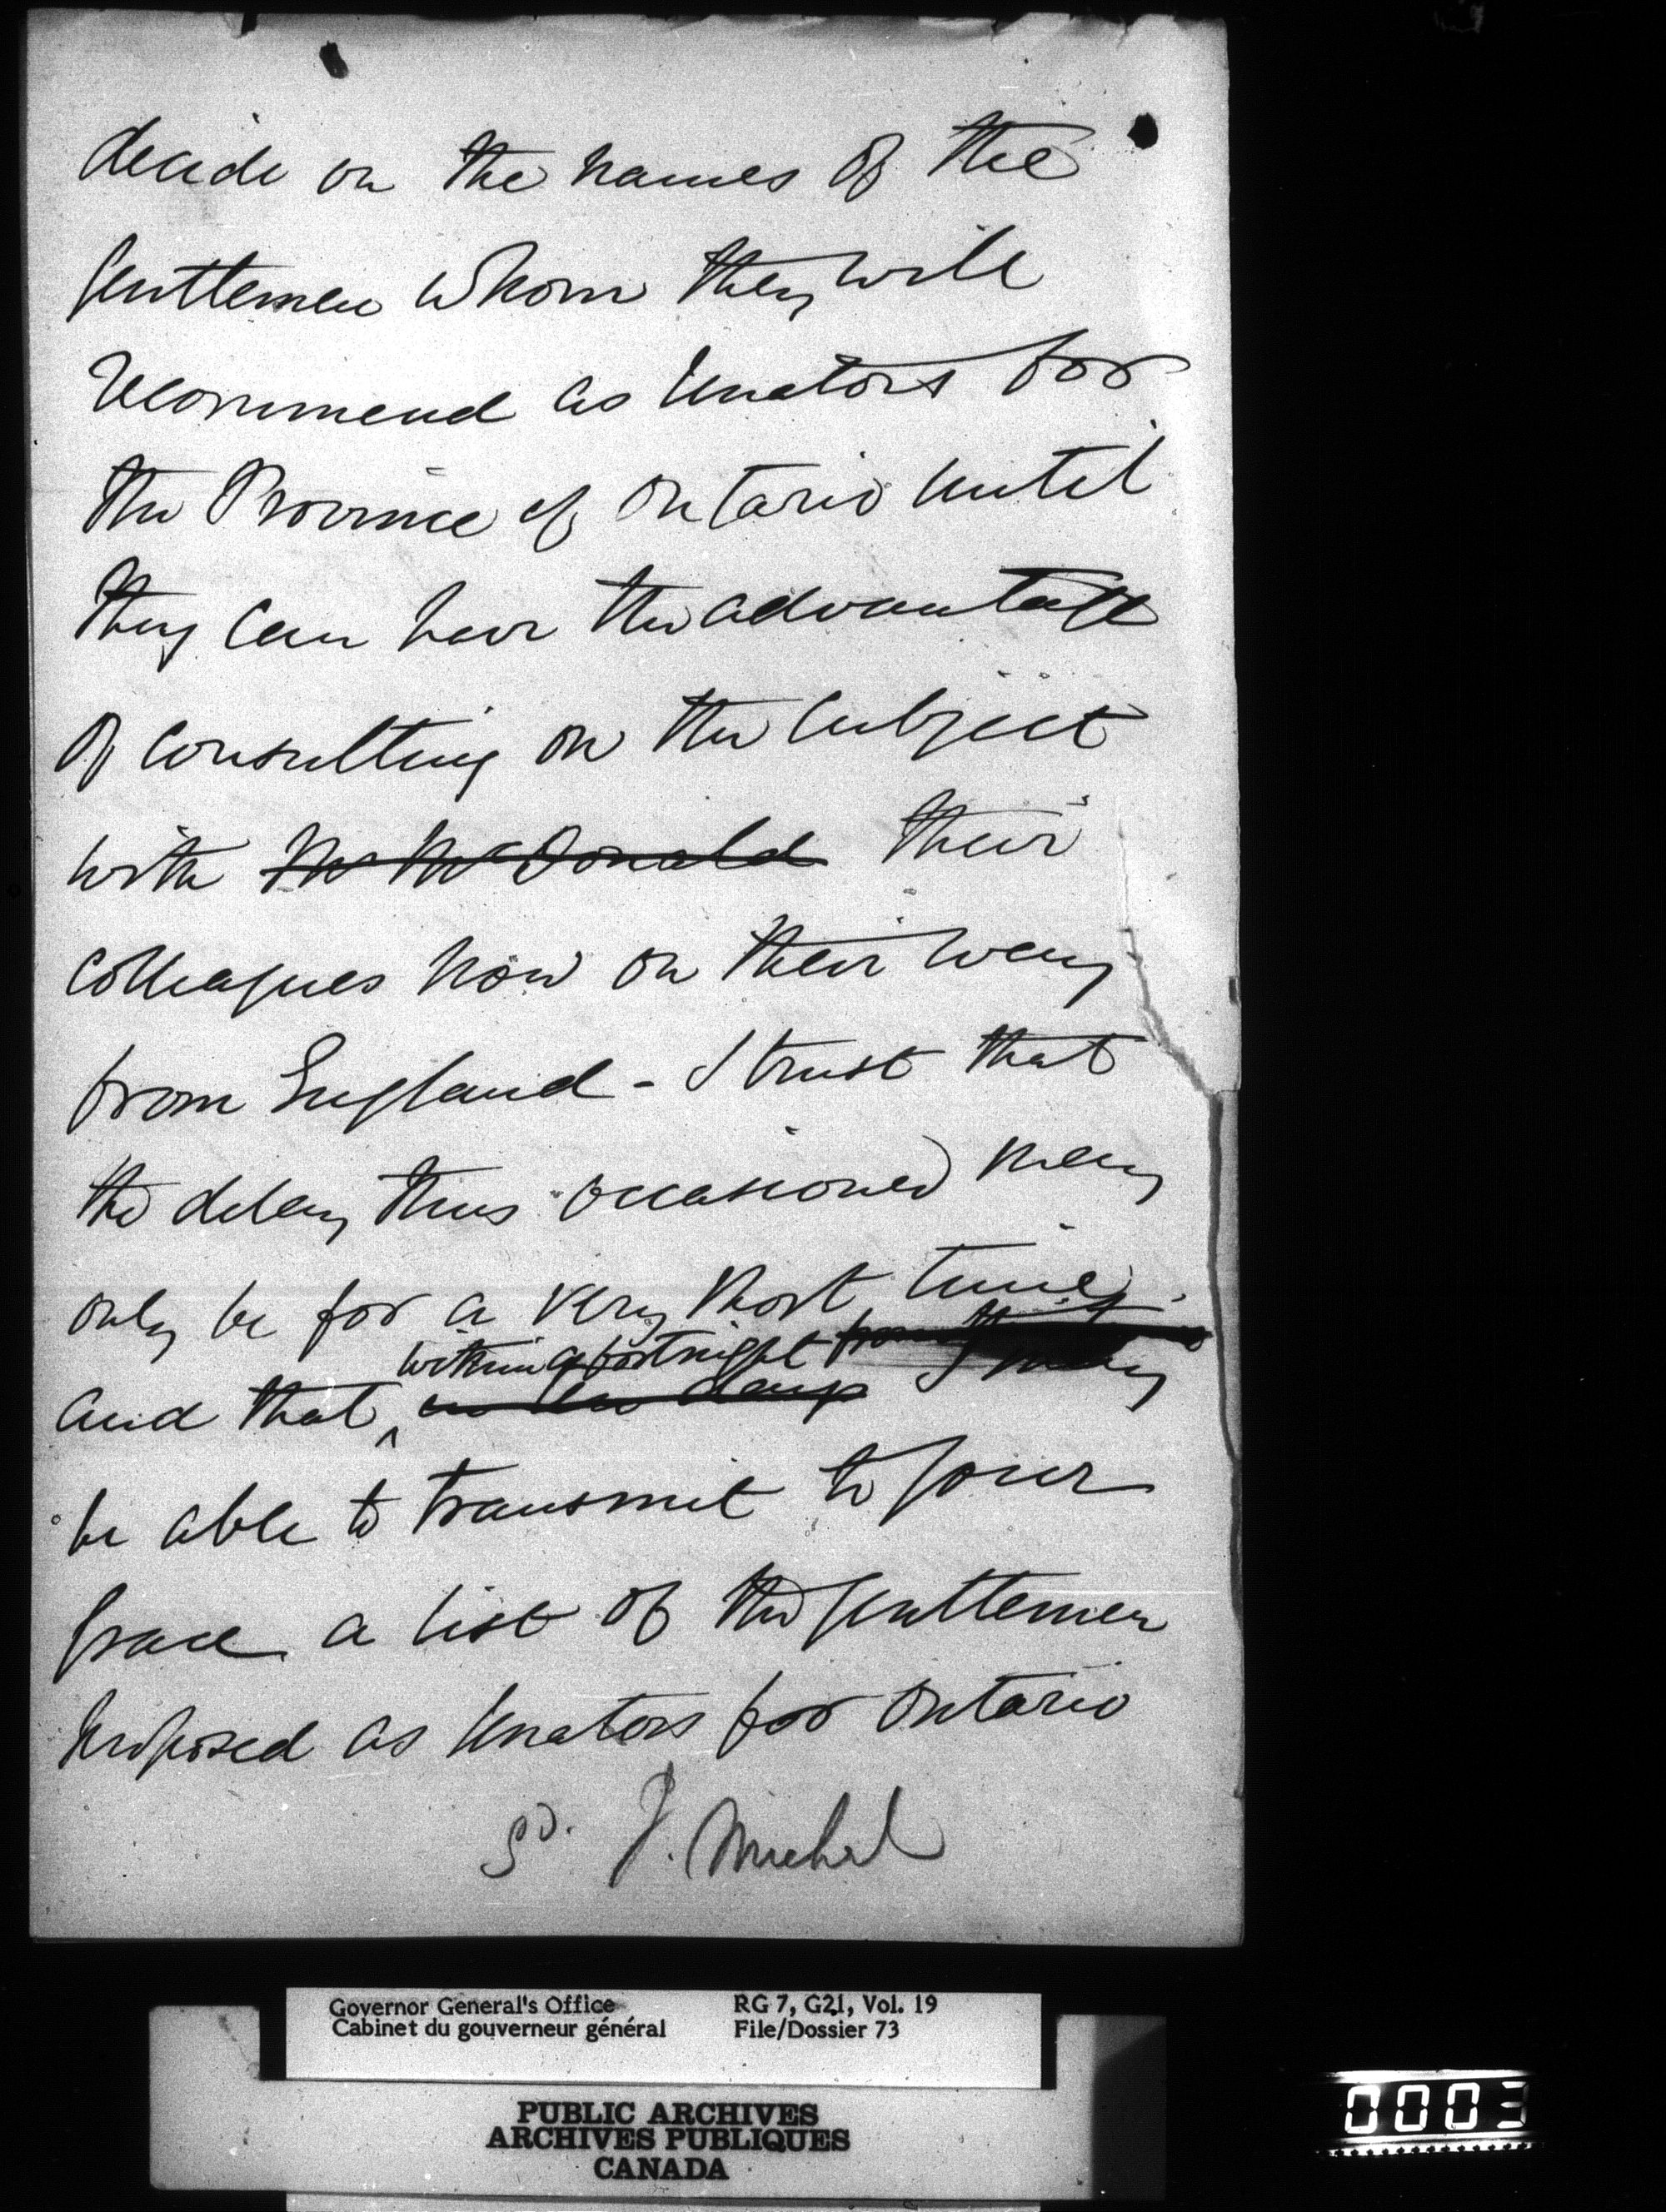 decide on the names of the
gentlemen whom they will
recommend as Senators for
the Province of Ontario until
they can have the advantage
of consulting on the subject
with Mr McDonald their
colleagues now on their way
from England - I trust that
the delay thus occasioned may
only be for a very short time
within a fortnight from
and that ^ I may
be able to transmit to your
Grace a list of the gentlemen
proposed as Senators for Ontario
Sd. J. Michel
Governor General's Office RG 7, G21, Vol. 19
Cabinet du gouverneur général File/Dossier 73
PUBLIC ARCHIVES
ARCHIVES PUBLIQUES
CANADA
0003